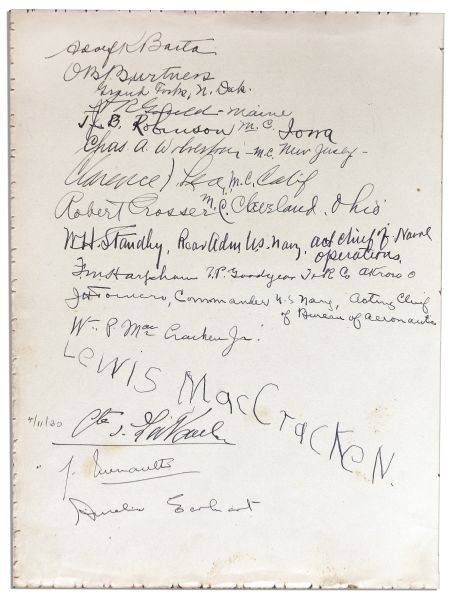 Adolf K Barta
O.B. Burtness
Grand Forks, N. Dak.
- Maine
T.J.B. Robinson M.C. Iowa
Chas. A. Wolverton - M.C. New Jersey -
Clarence F Lea, M.C. Calif
Robert Crosser M.C. Cleveland, Ohio
W.H. Standley, Rear Adm U.S. Navy, act chief of Naval
operations,
F M Harpham V.P. Goodyear T & R Co Akron O
J H Towers, Commander U.S Navy, Acting Chief
of Bureau of Aeronautics
Wm P. Mac Cracken Jr.
LEWIS MacCrackeN.
4/11/30
Cte
J.
Amelia Earhart